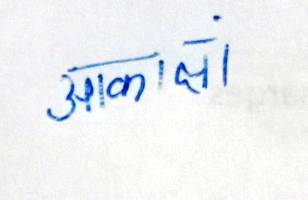 आकांक्षा